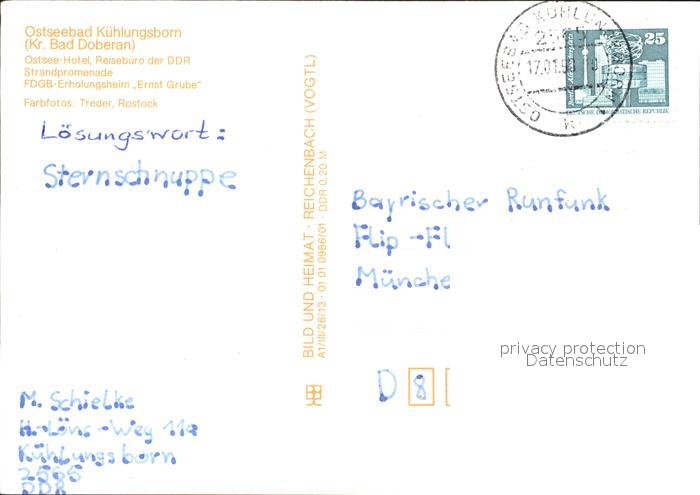 Ostseebad Kühlungsborn
(Kr. Bad Doberan)
Ostsee-Hotel, Reisebüro der DDR
Strandpromenade
FDGB-Erholungsheim „Ernst Grube“
Farbfotos: Treder, Rostock
Lösungswort:
Sternschnuppe
BILD UND HEIMAT · REICHENBACH (VOGTL)
A1/III/26/13 · 01 01 0986/01 · DDR 0.20 M
OSTSEEBAD KÜHLUNGSBORN
2565
17.01.90
25
DEUTSCHE DEMOKRATISCHE REPUBLIK
Bayrischer Runfunk
Flip-Fl
Münche
privacy protection
Datenschutz
D 8
M. Schielke
H.-Löns-Weg 11a
Kühlungsborn
2565
DDR